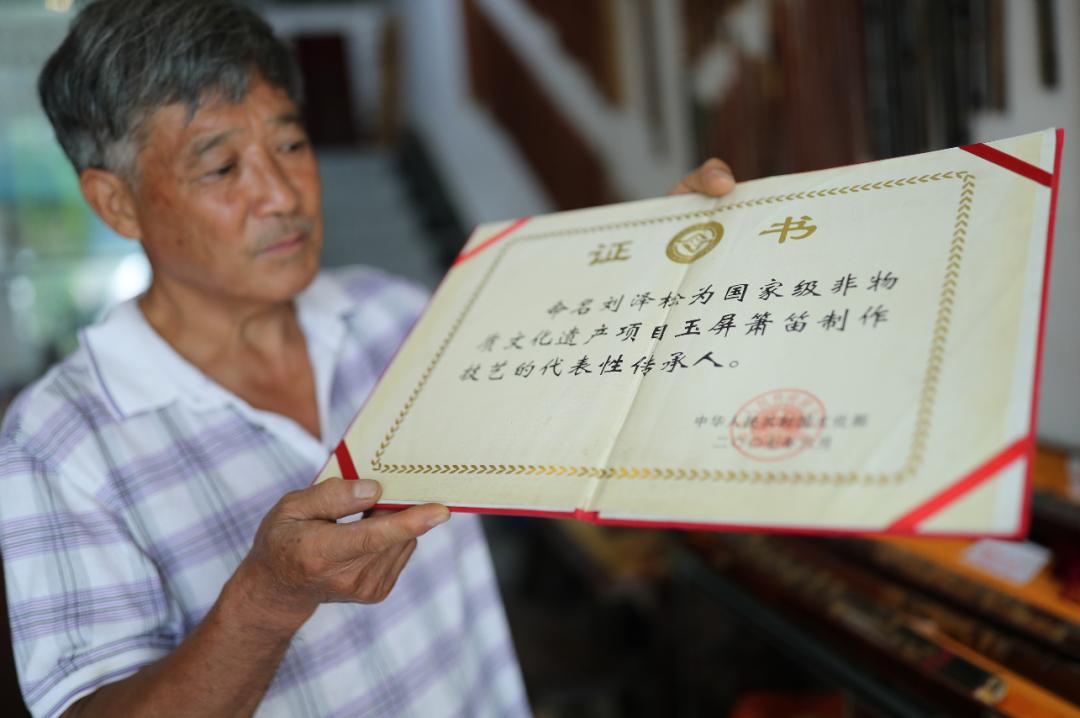 证书
命名刘泽松为国家级非物
质文化遗产项目玉屏箫笛制作
技艺的代表性传承人。
中华人民共和国文化部
二〇〇七年六月